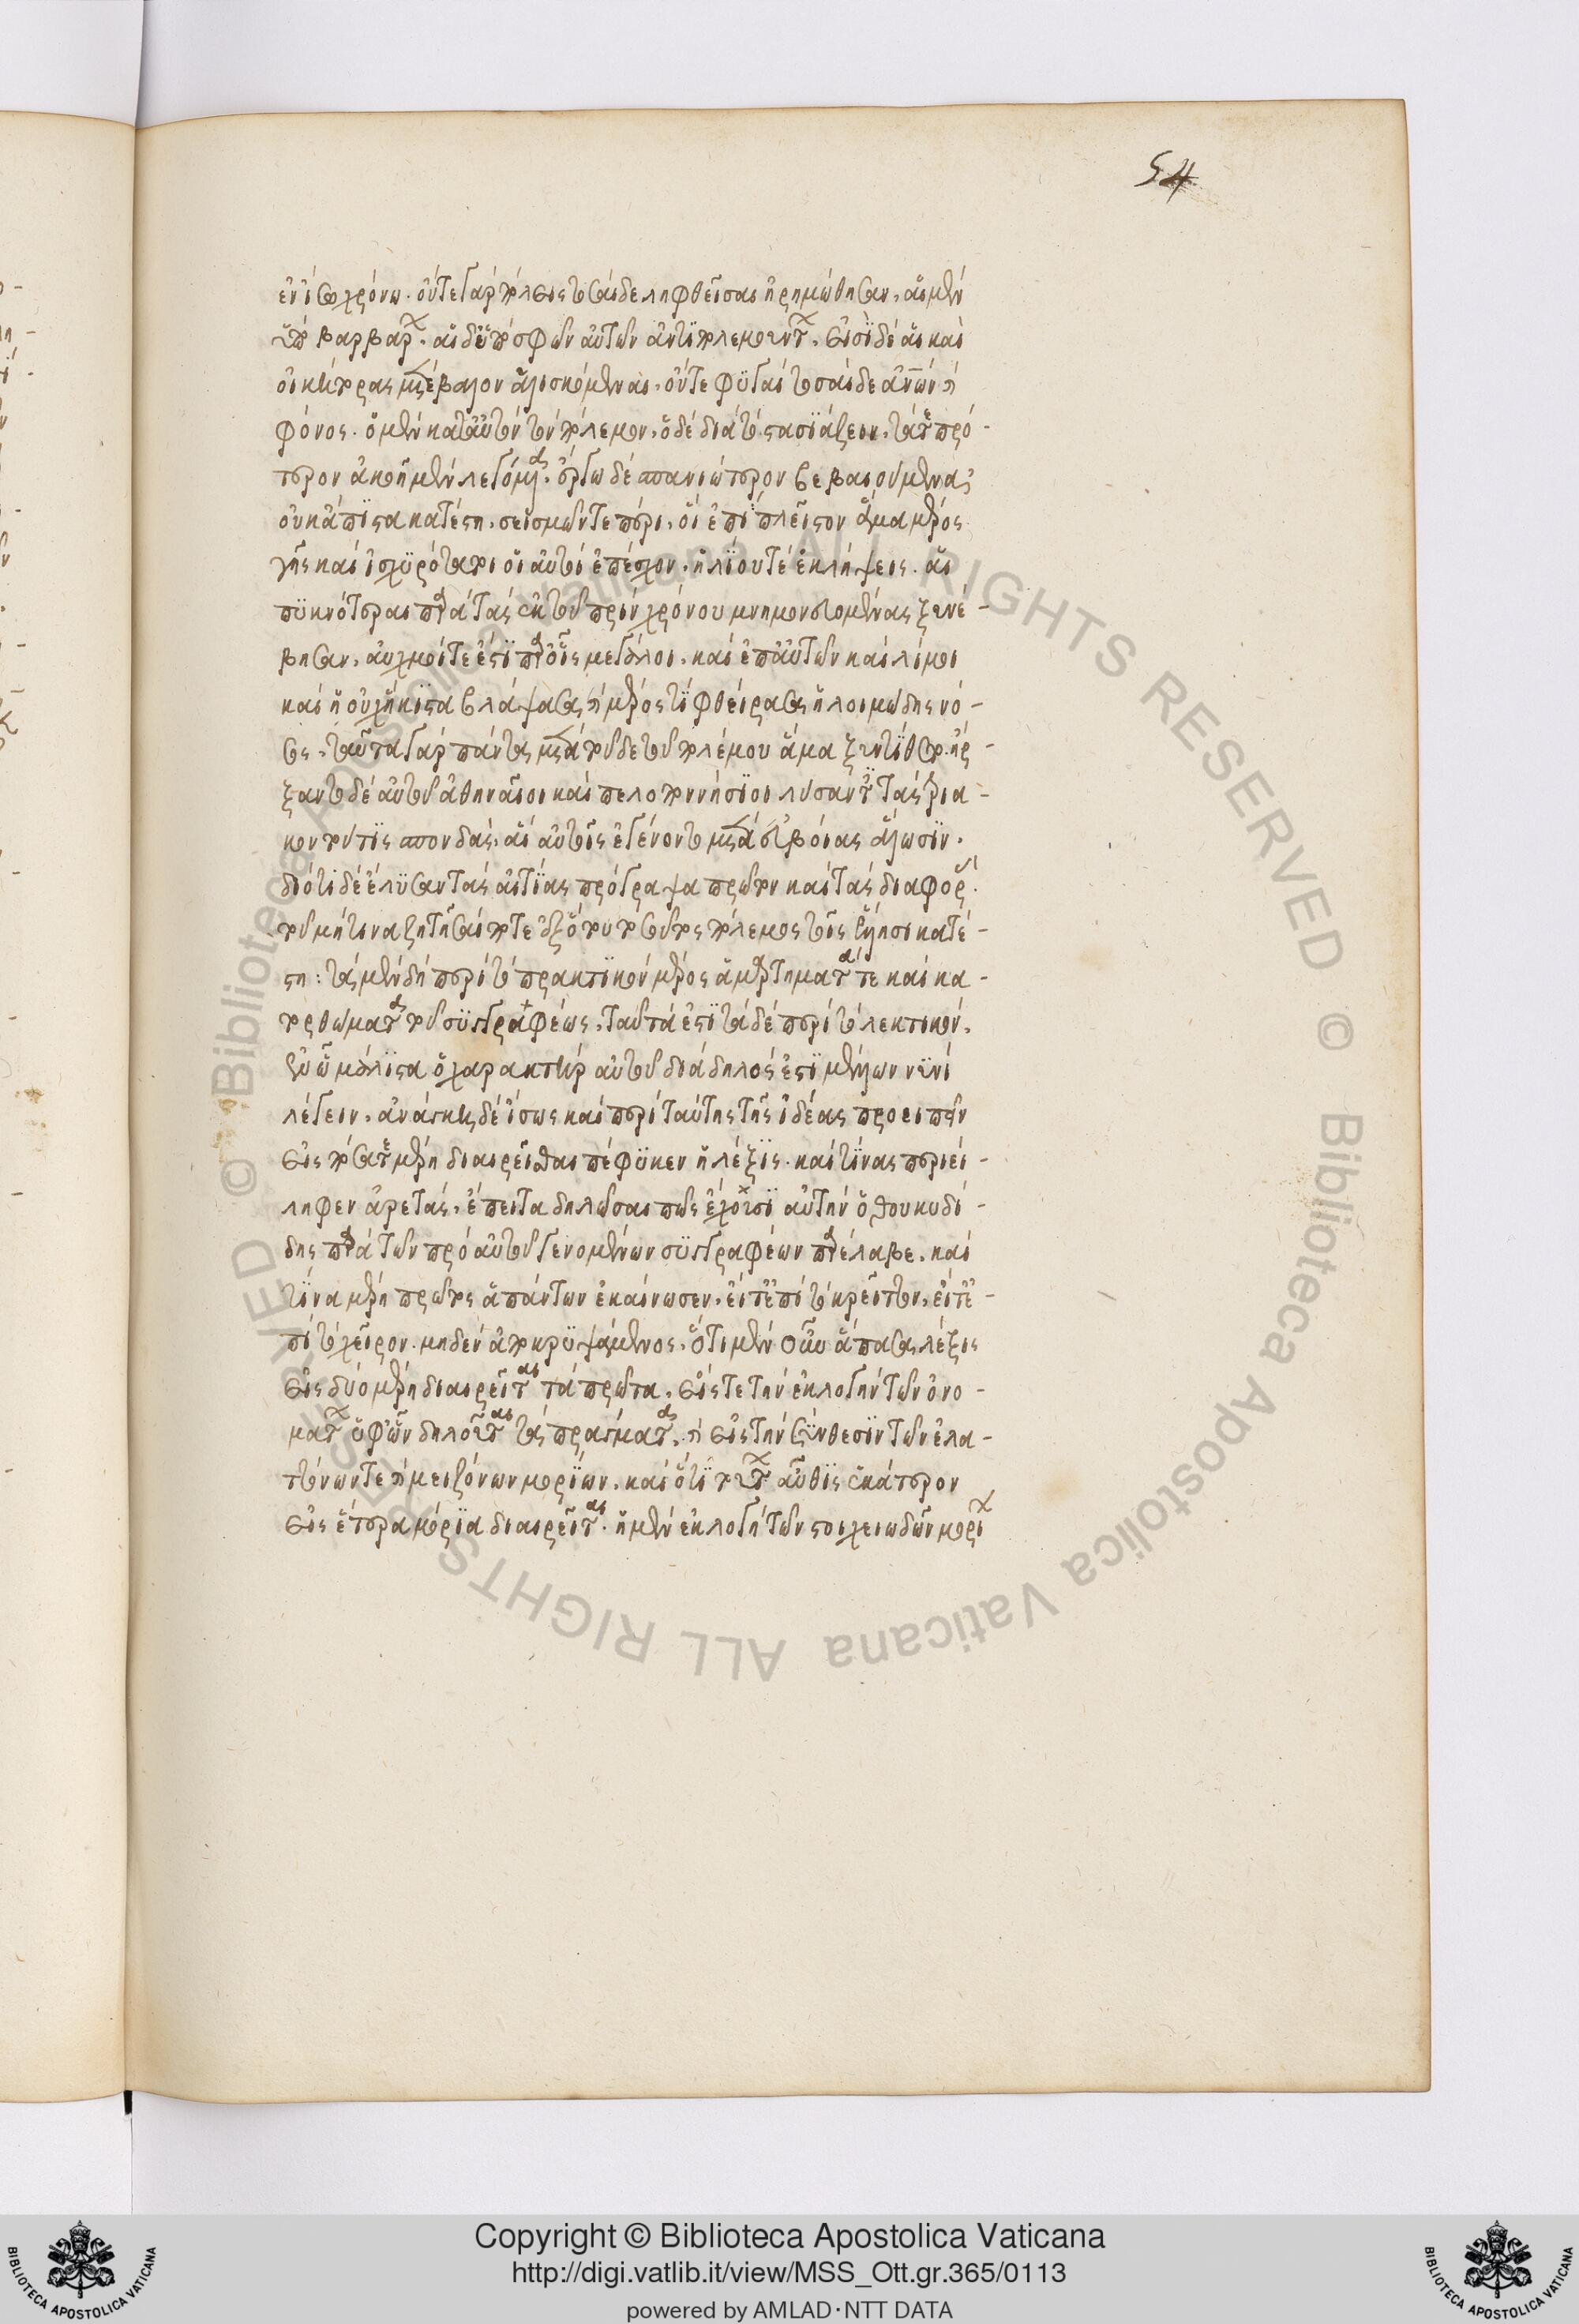 54
ἐν ἴσῳ χρόνῳ. οὔτε γὰρ πόλεις τοσαίδε ληφθεῖσαι ἠρημώθησαν, αἱ μὲν
ὑπὸ βαρβάρων. αἱ δὲ ὑπὸ σφῶν αὐτῶν ἀντιπολεμούντων. εἰσὶ δὲ αἳ καὶ
οἰκήτορας μετέβαλον ἁλισκόμεναι. οὔτε φυγαὶ τοσαίδε ἀνων καὶ
φόνος. ὁ μὲν κατ' αὐτὸν τὸν πόλεμον, ὁ δὲ διὰ τὸ στασιάζειν. τά τε πρό-
τερον ἀκοῇ μὲν λεγόμενα. ἔργῳ δὲ σπανιώτερον βεβαιούμενα,
οὐκ ἄπιστα κατέστη. σεισμῶν τε πέρι, οἳ ἐπὶ πλεῖστον ἅμα μέρος
γῆς καὶ ἰσχυρότατοι οἱ αὐτοὶ ἐπέσχον. ἡλίου τε ἐκλήψεις. αἳ
πυκνότεραι παρὰ τὰς ἐκ τοῦ πρὶν χρόνου μνημονευομένας ξυνέ-
βησαν. αὐχμοί τε ἔστι παρ' οἷς μεγάλοι. καὶ ἐπ' αὐτῶν καὶ λιμοὶ
καὶ ἡ οὐχ ἥκιστα βλάψασα καὶ μέρος τι φθείρασα ἡ λοιμώδης νό-
σος. ταῦτα γὰρ πάντα μετὰ τοῦδε τοῦ πολέμου ἅμα ξυνετίθετο. ἤρ-
ξαντο δὲ αὐτοῦ ἀθηναῖοι καὶ πελοποννήσιοι λύσαντες τὰς τρια-
κοντούτις σπονδάς. αἳ αὐτοῖς ἐγένοντο μετὰ εὐβοίας ἅλωσιν.
διότι δὲ ἔλυσαν τὰς αἰτίας προέγραψα πρῶτον καὶ τὰς διαφοράς.
τοῦ μή τινα ζητῆσαί ποτε ἐξ ὅτου τοσοῦτος πόλεμος τοῖς ἕλλησι κατέ-
στη: τὰ μὲν δὴ περὶ τὸ πρακτικὸν μέρος ἁμαρτήματά τε καὶ κα-
τορθώματα τοῦ συγγραφέως. ταῦτά ἐστι τὰ δὲ περὶ τὸ λεκτικόν.
ἐν ᾧ μάλιστα ὁ χαρακτὴρ αὐτοῦ διάδηλός ἐστι μέλλων νυνὶ
λέγειν. ἀνάγκη δὲ ἴσως καὶ περὶ ταύτης τῆς ἰδέας προειπεῖν
εἰς πόσα τε μέρη διαιρεῖσθαι πέφυκεν ἡ λέξις. καὶ τίνας περιεί-
ληφεν ἀρετάς. ἔπειτα δηλῶσαι πῶς ἔχουσι αὐτὴν ὁ θουκυδί-
δης παρὰ τῶν πρὸ αὐτοῦ γενομένων συγγραφέων παρέλαβε. καὶ
τίνα μέρη πρῶτος ἁπάντων ἐκαίνωσεν. εἴτε ἐπὶ τὸ κρεῖττον. εἴτε ἐ-
πὶ τὸ χεῖρον. μηδὲν ἀποκρυψάμενος. ὅτι μὲν οὖν ἅπασα λέξις
εἰς δύο μέρη διαιρεῖται τὰ πρῶτα. εἴς τε τὴν ἐκλογὴν τῶν ὀνο-
μάτων ὑφ' ὧν δηλοῦται τὰ πράγματα. καὶ εἰς τὴν σύνθεσιν τῶν ἐλα-
ττόνων τε καὶ μειζόνων μορίων. καὶ ὅτι τούτων αὖθις ἑκάτερον
εἰς ἕτερα μόρια διαιρεῖται. ἡ μὲν ἐκλογὴ τῶν στοιχειωδῶν μορίων
Copyright © Biblioteca Apostolica Vaticana
http://digi.vatlib.it/view/MSS_Ott.gr.365/0113
powered by AMLAD·NTT DATA